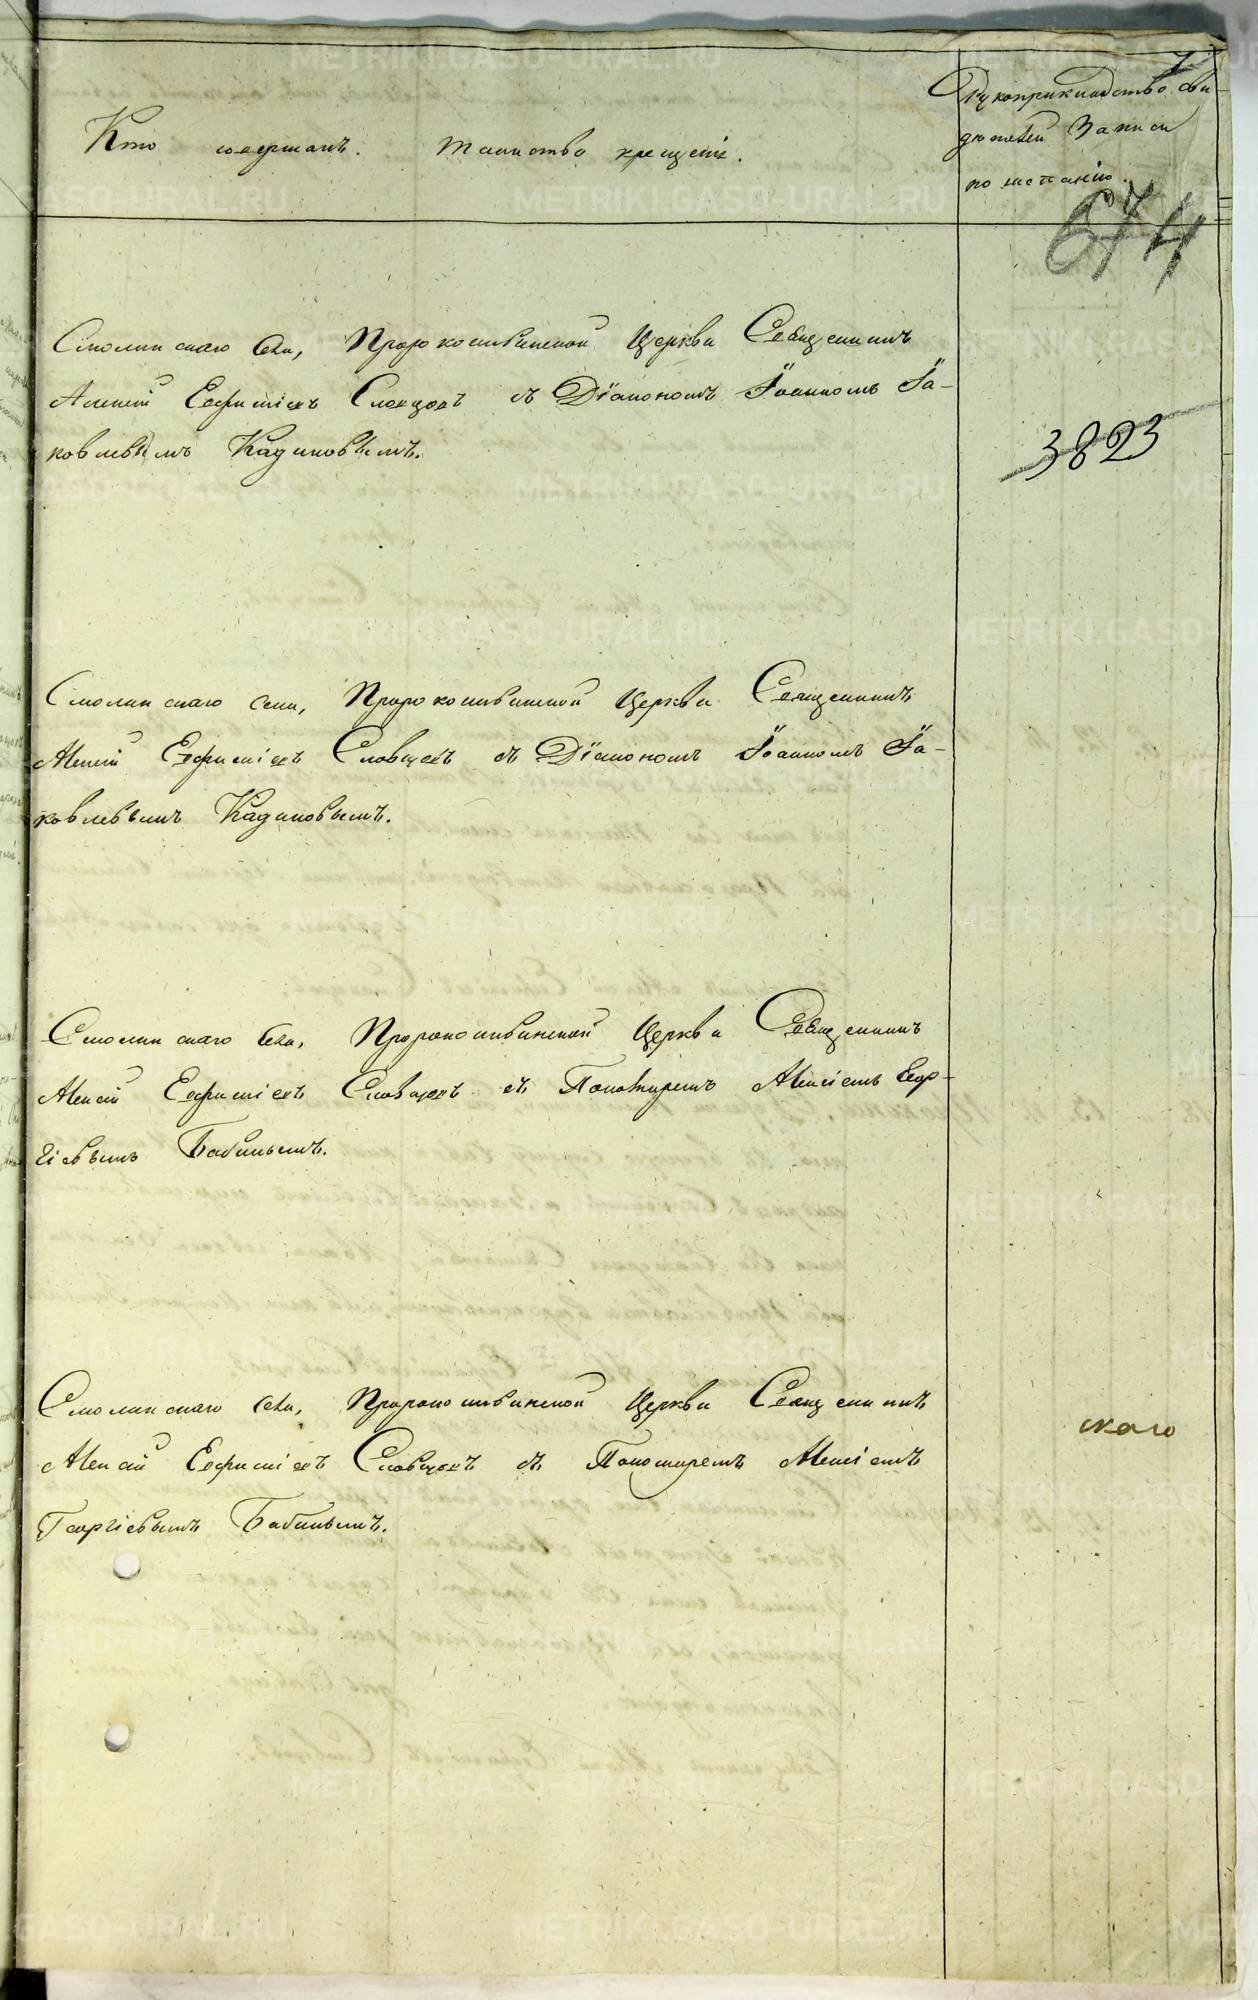 Кто совершалъ таинство крещенія.
Рукоприкладство сви-
дѣтелей записи
по желанію.
674
Смолинскаго села, Пророкоильинской Церкви Священникъ
Алексій Евфиміевъ Словцовъ съ Діакономъ Іоанномъ Іа-
ковлевымъ Кадиновымъ.
3823
Смолинскаго села, Пророкоильинской Церкви Священникъ
Алексій Евфиміевъ Словцовъ съ Діакономъ Іоанномъ Іа-
ковлевымъ Кадиновымъ.
Смолинскаго села, Пророкоильинской Церкви Священникъ
Алексій Евфиміевъ Словцовъ съ Пономаремъ Алексіемъ Геор-
гіевымъ Бабинымъ.
Смолинскаго села, Пророкоильинской Церкви Священникъ
Алексій Евфиміевъ Словцовъ съ Пономаремъ Алексіемъ
Георгіевымъ Бабинымъ.
скаго
METRIKI.GASO-URAL.RU